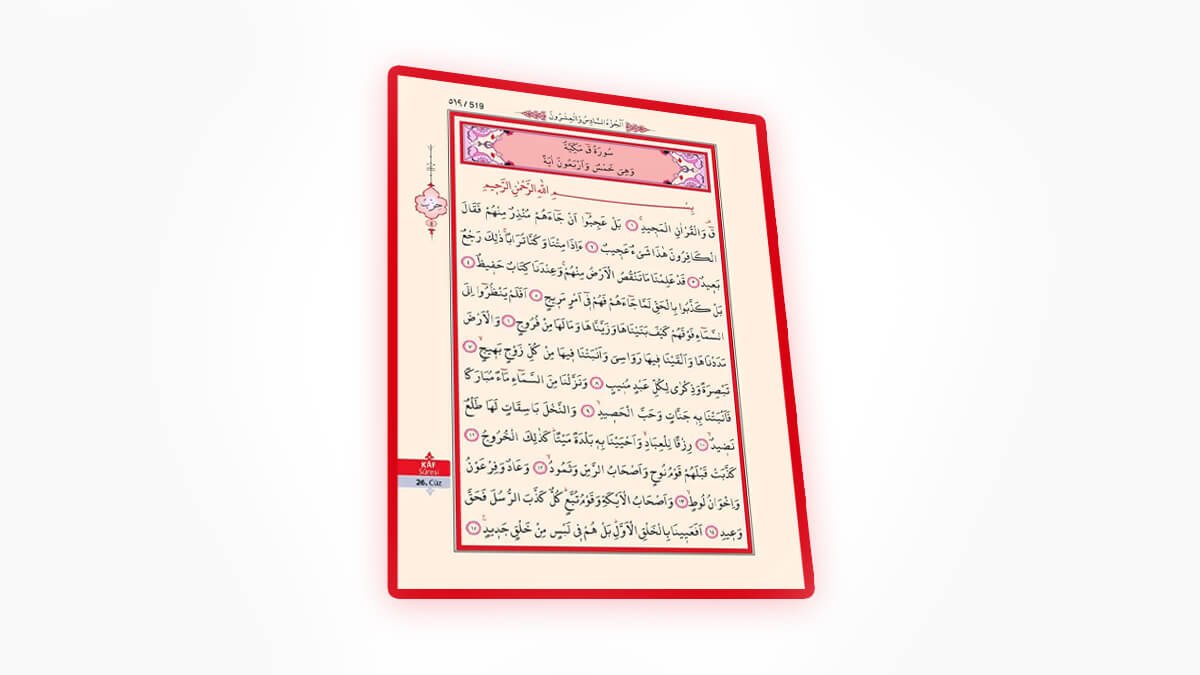 ٥١٩ / 519
اَلْجُزْءُ السَّادِسُ وَالْعِشْرُونَ
سُورَةُ قٓ مَكِّيَّةٌ
وَهِىَ خَمْسٌ وَاَرْبَعُونَ اٰيَةً
بِسْمِ اللّٰهِ الرَّحْمٰنِ الرَّحٖيمِ
حزب
قٓ وَالْقُرْاٰنِ الْمَجٖيدِ ١ بَلْ عَجِبُٓوا اَنْ جَٓاءَهُمْ مُنْذِرٌ مِنْهُمْ فَقَالَ
الْكَافِرُونَ هٰذَا شَیْءٌ عَجٖيبٌ ٢ ءَاِذَا مِتْنَا وَكُنَّا تُرَابًا ذٰلِكَ رَجْعٌ
بَعٖيدٌ ٣ قَدْ عَلِمْنَا مَا تَنْقُصُ الْاَرْضُ مِنْهُمْ وَعِنْدَنَا كِتَابٌ حَفٖيظٌ ٤
بَلْ كَذَّبُوا بِالْحَقِّ لَمَّا جَٓاءَهُمْ فَهُمْ فٖٓى اَمْرٍ مَرٖيجٍ ٥ اَفَلَمْ يَنْظُرُٓوا اِلَى
السَّمَٓاءِ فَوْقَهُمْ كَيْفَ بَنَيْنَاهَا وَزَيَّنَّاهَا وَمَا لَهَا مِنْ فُرُوجٍ ٦ وَالْاَرْضَ
مَدَدْنَاهَا وَاَلْقَيْنَا فٖيهَا رَوَاسِیَ وَاَنْبَتْنَا فٖيهَا مِنْ كُلِّ زَوْجٍ بَهٖيجٍ ٧
تَبْصِرَةً وَذِكْرٰى لِكُلِّ عَبْدٍ مُنٖيبٍ ٨ وَنَزَّلْنَا مِنَ السَّمَٓاءِ مَٓاءً مُبَارَكًا
فَاَنْبَتْنَا بِهٖ جَنَّاتٍ وَحَبَّ الْحَصٖيدِ ٩ وَالنَّخْلَ بَاسِقَاتٍ لَهَا طَلْعٌ
نَضٖيدٌ ١٠ رِزْقًا لِلْعِبَادِ وَاَحْيَيْنَا بِهٖ بَلْدَةً مَيْتًا كَذٰلِكَ الْخُرُوجُ ١١
كَذَّبَتْ قَبْلَهُمْ قَوْمُ نُوحٍ وَاَصْحَابُ الرَّسِّ وَثَمُودُ ١٢ وَعَادٌ وَفِرْعَوْنُ
وَاِخْوَانُ لُوطٍ ١٣ وَاَصْحَابُ الْاَيْكَةِ وَقَوْمُ تُبَّعٍ كُلٌّ كَذَّبَ الرُّسُلَ فَحَقَّ
وَعٖيدِ ١٤ اَفَعَيٖينَا بِالْخَلْقِ الْاَوَّلِ بَلْ هُمْ فٖى لَبْسٍ مِنْ خَلْقٍ جَدٖيدٍ ١٥
KÂF
Sûresi
26. Cüz